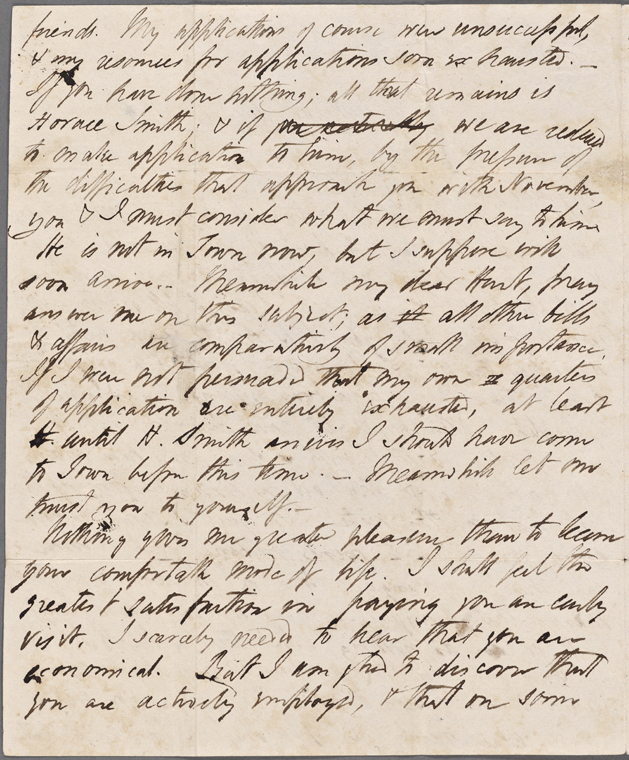 friends. My applications of course were unsuccessful,
& my resources for applications soon exhausted. —
If you have done nothing; all that remains is
Horace Smith; & if we actually we are reduced
to make application to him, by the pressure of
the difficulties that approach you with November,
you & I must consider what we must say to him
He is not in Town now, but I suppose will
soon arrive. — Meanwhile my dear Hunt, pray
answer me on this subject, as it all other bills
& affairs are comparatively of small importance.
If I were not persuaded that my own quarters
of application are entirely exhausted, at least
until H. Smith arrives I should have come
to Town before this time. — Meanwhile let me
trust you to yourself. —
Nothing gives me greater pleasure than to learn
your comfortable mode of life. I shall feel the
greatest satisfaction in paying you an early
visit. I scarcely needed to hear that you are
economical. But I am glad to discover that
you are actively employed, & that on some